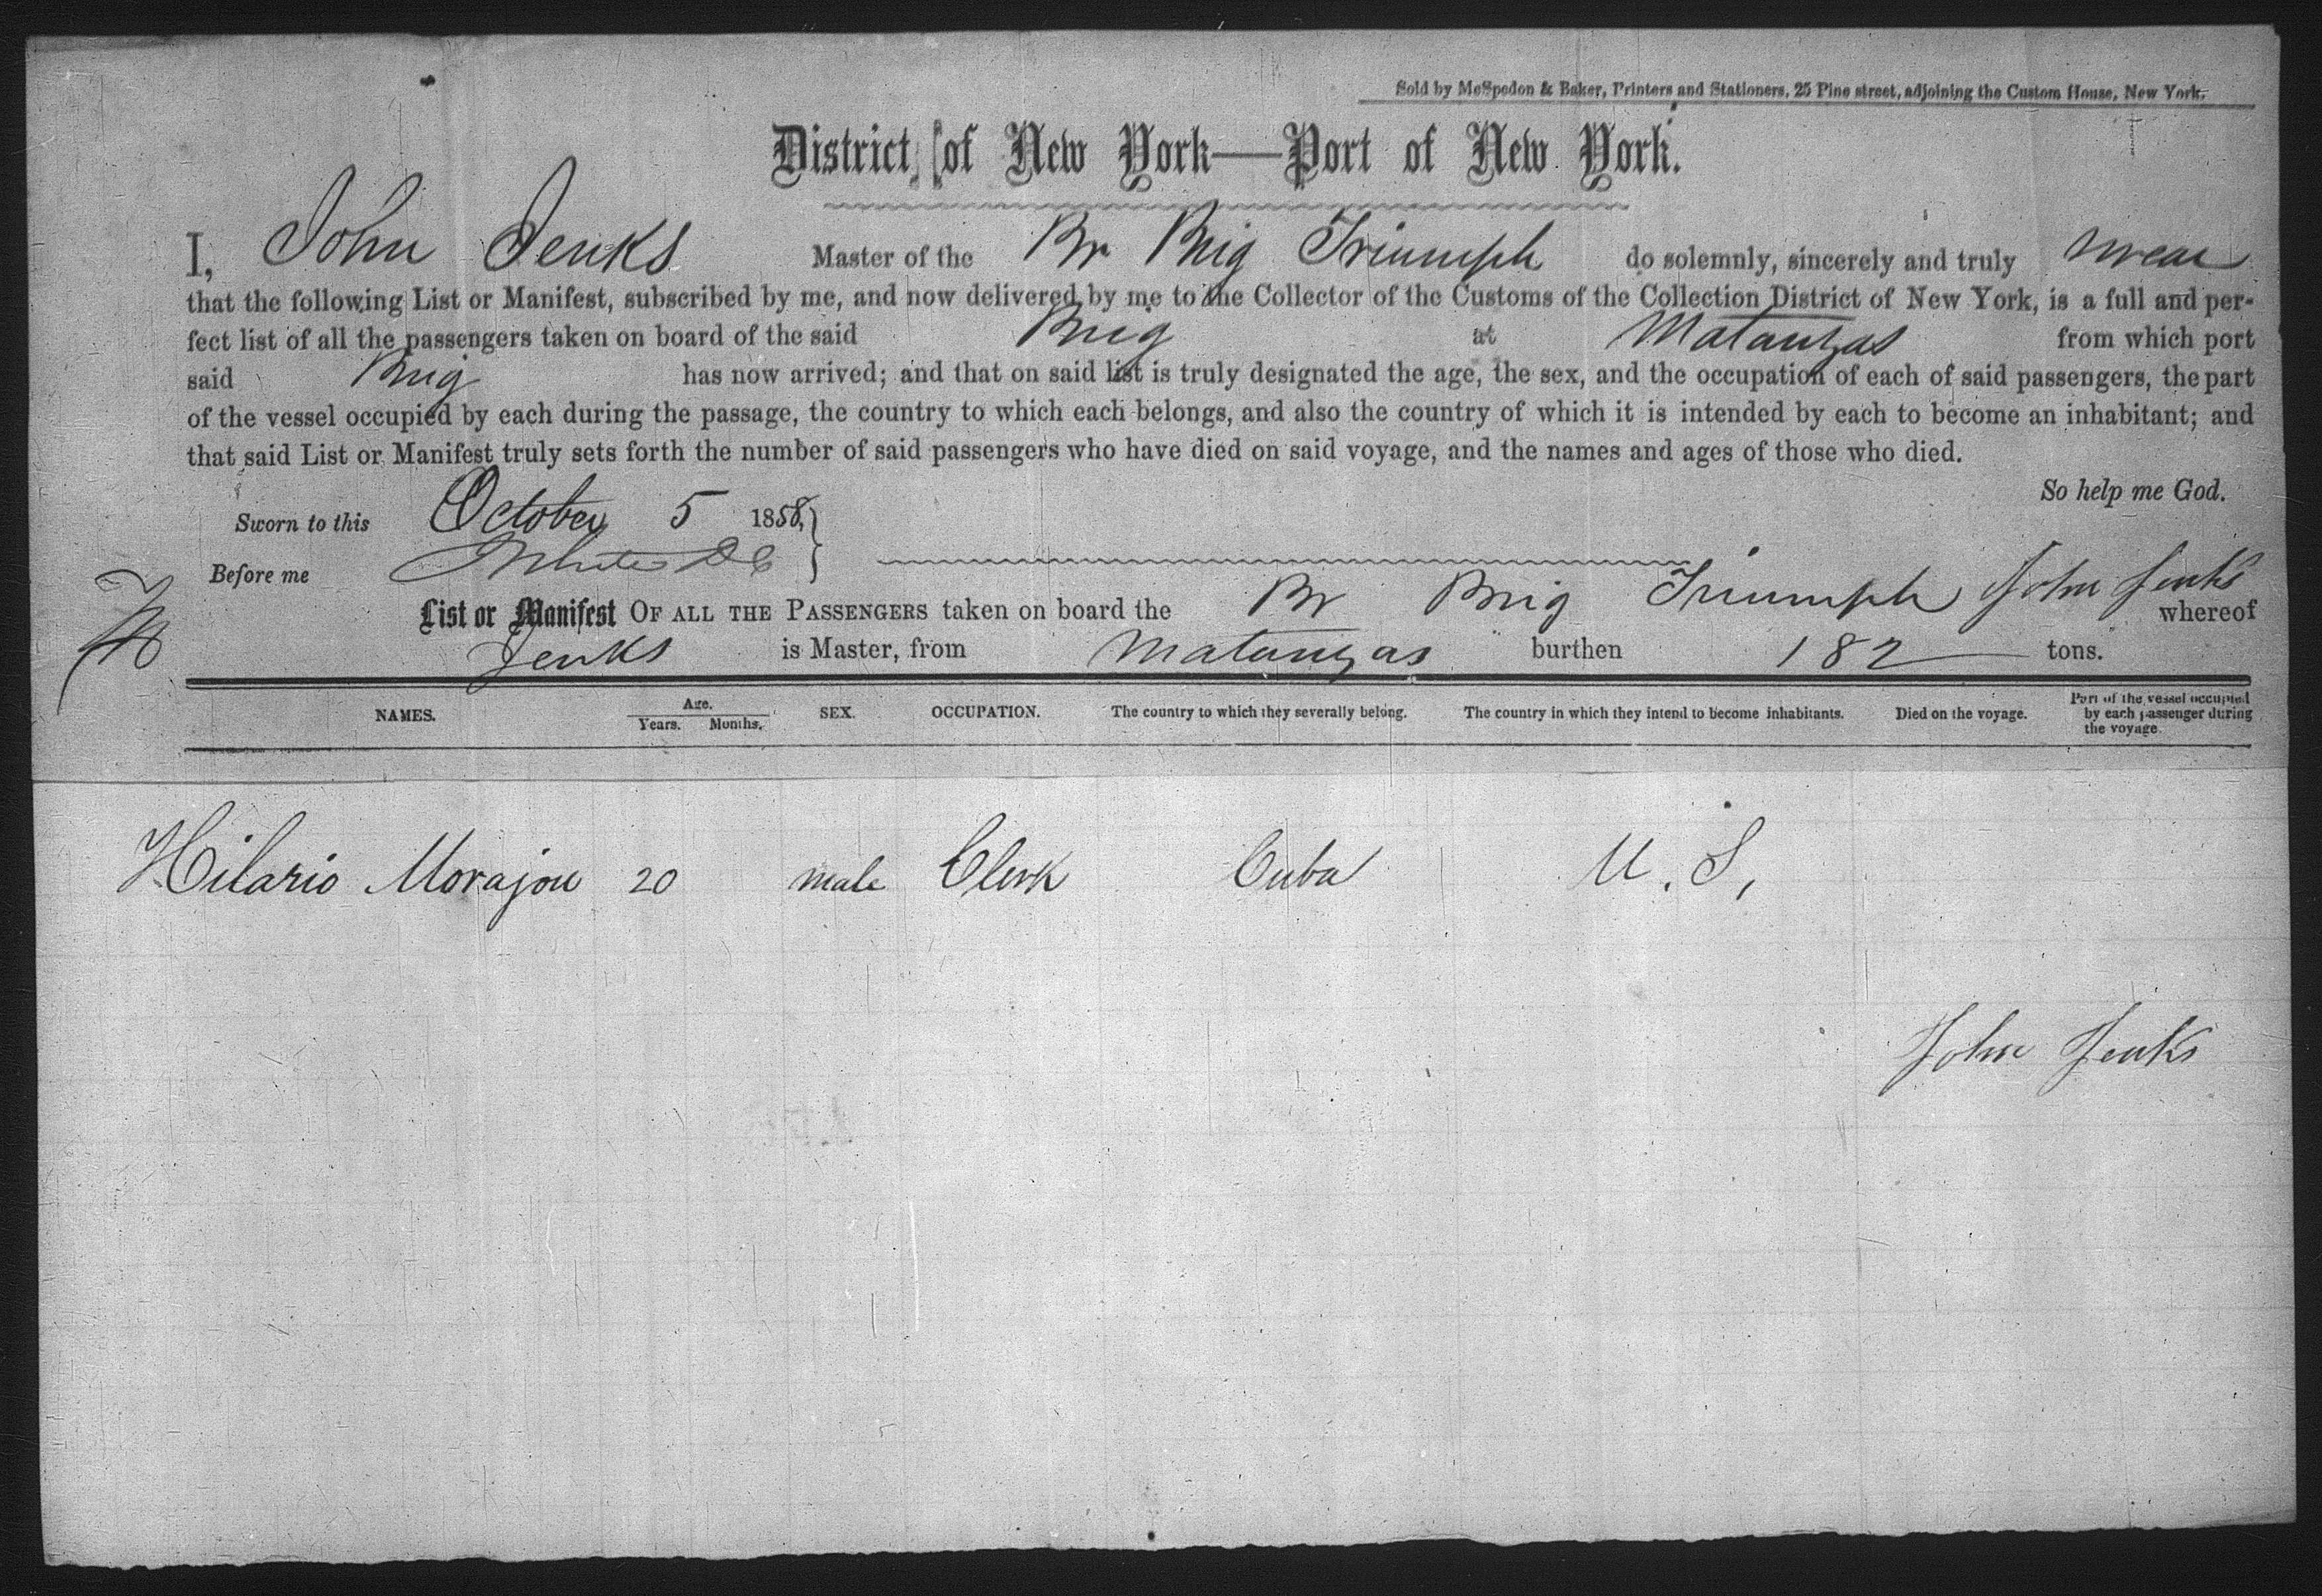 Sold by McSpedon & Baker, Printers and Stationers, 25 Pine street, adjoining the Custom House, New York.
District of New York—Port of New York.
I, John Jenks Master of the Br Brig Triumph do solemnly, sincerely and truly swear
that the following List or Manifest, subscribed by me, and now delivered by me to the Collector of the Customs of the Collection District of New York, is a full and per-
fect list of all the passengers taken on board of the said Brig at Matanzas from which port
said Brig has now arrived; and that on said list is truly designated the age, the sex, and the occupation of each of said passengers, the part
of the vessel occupied by each during the passage, the country to which each belongs, and also the country of which it is intended by each to become an inhabitant; and
that said List or Manifest truly sets forth the number of said passengers who have died on said voyage, and the names and ages of those who died.
So help me God.
Sworn to this October 5 1858,
Before me White DC John Jenks
List or Manifest OF ALL THE PASSENGERS taken on board the Br Brig Triumph whereof
Jenks is Master, from Matanzas burthen 182 tons.
NAMES. Age. Years. Months. SEX. OCCUPATION. The country to which they severally belong. The country in which they intend to become inhabitants. Died on the voyage. Part of the vessel occupied by each passenger during the voyage.
Hilario Morajou 20 male Clerk Cuba U. S,
John Jenks